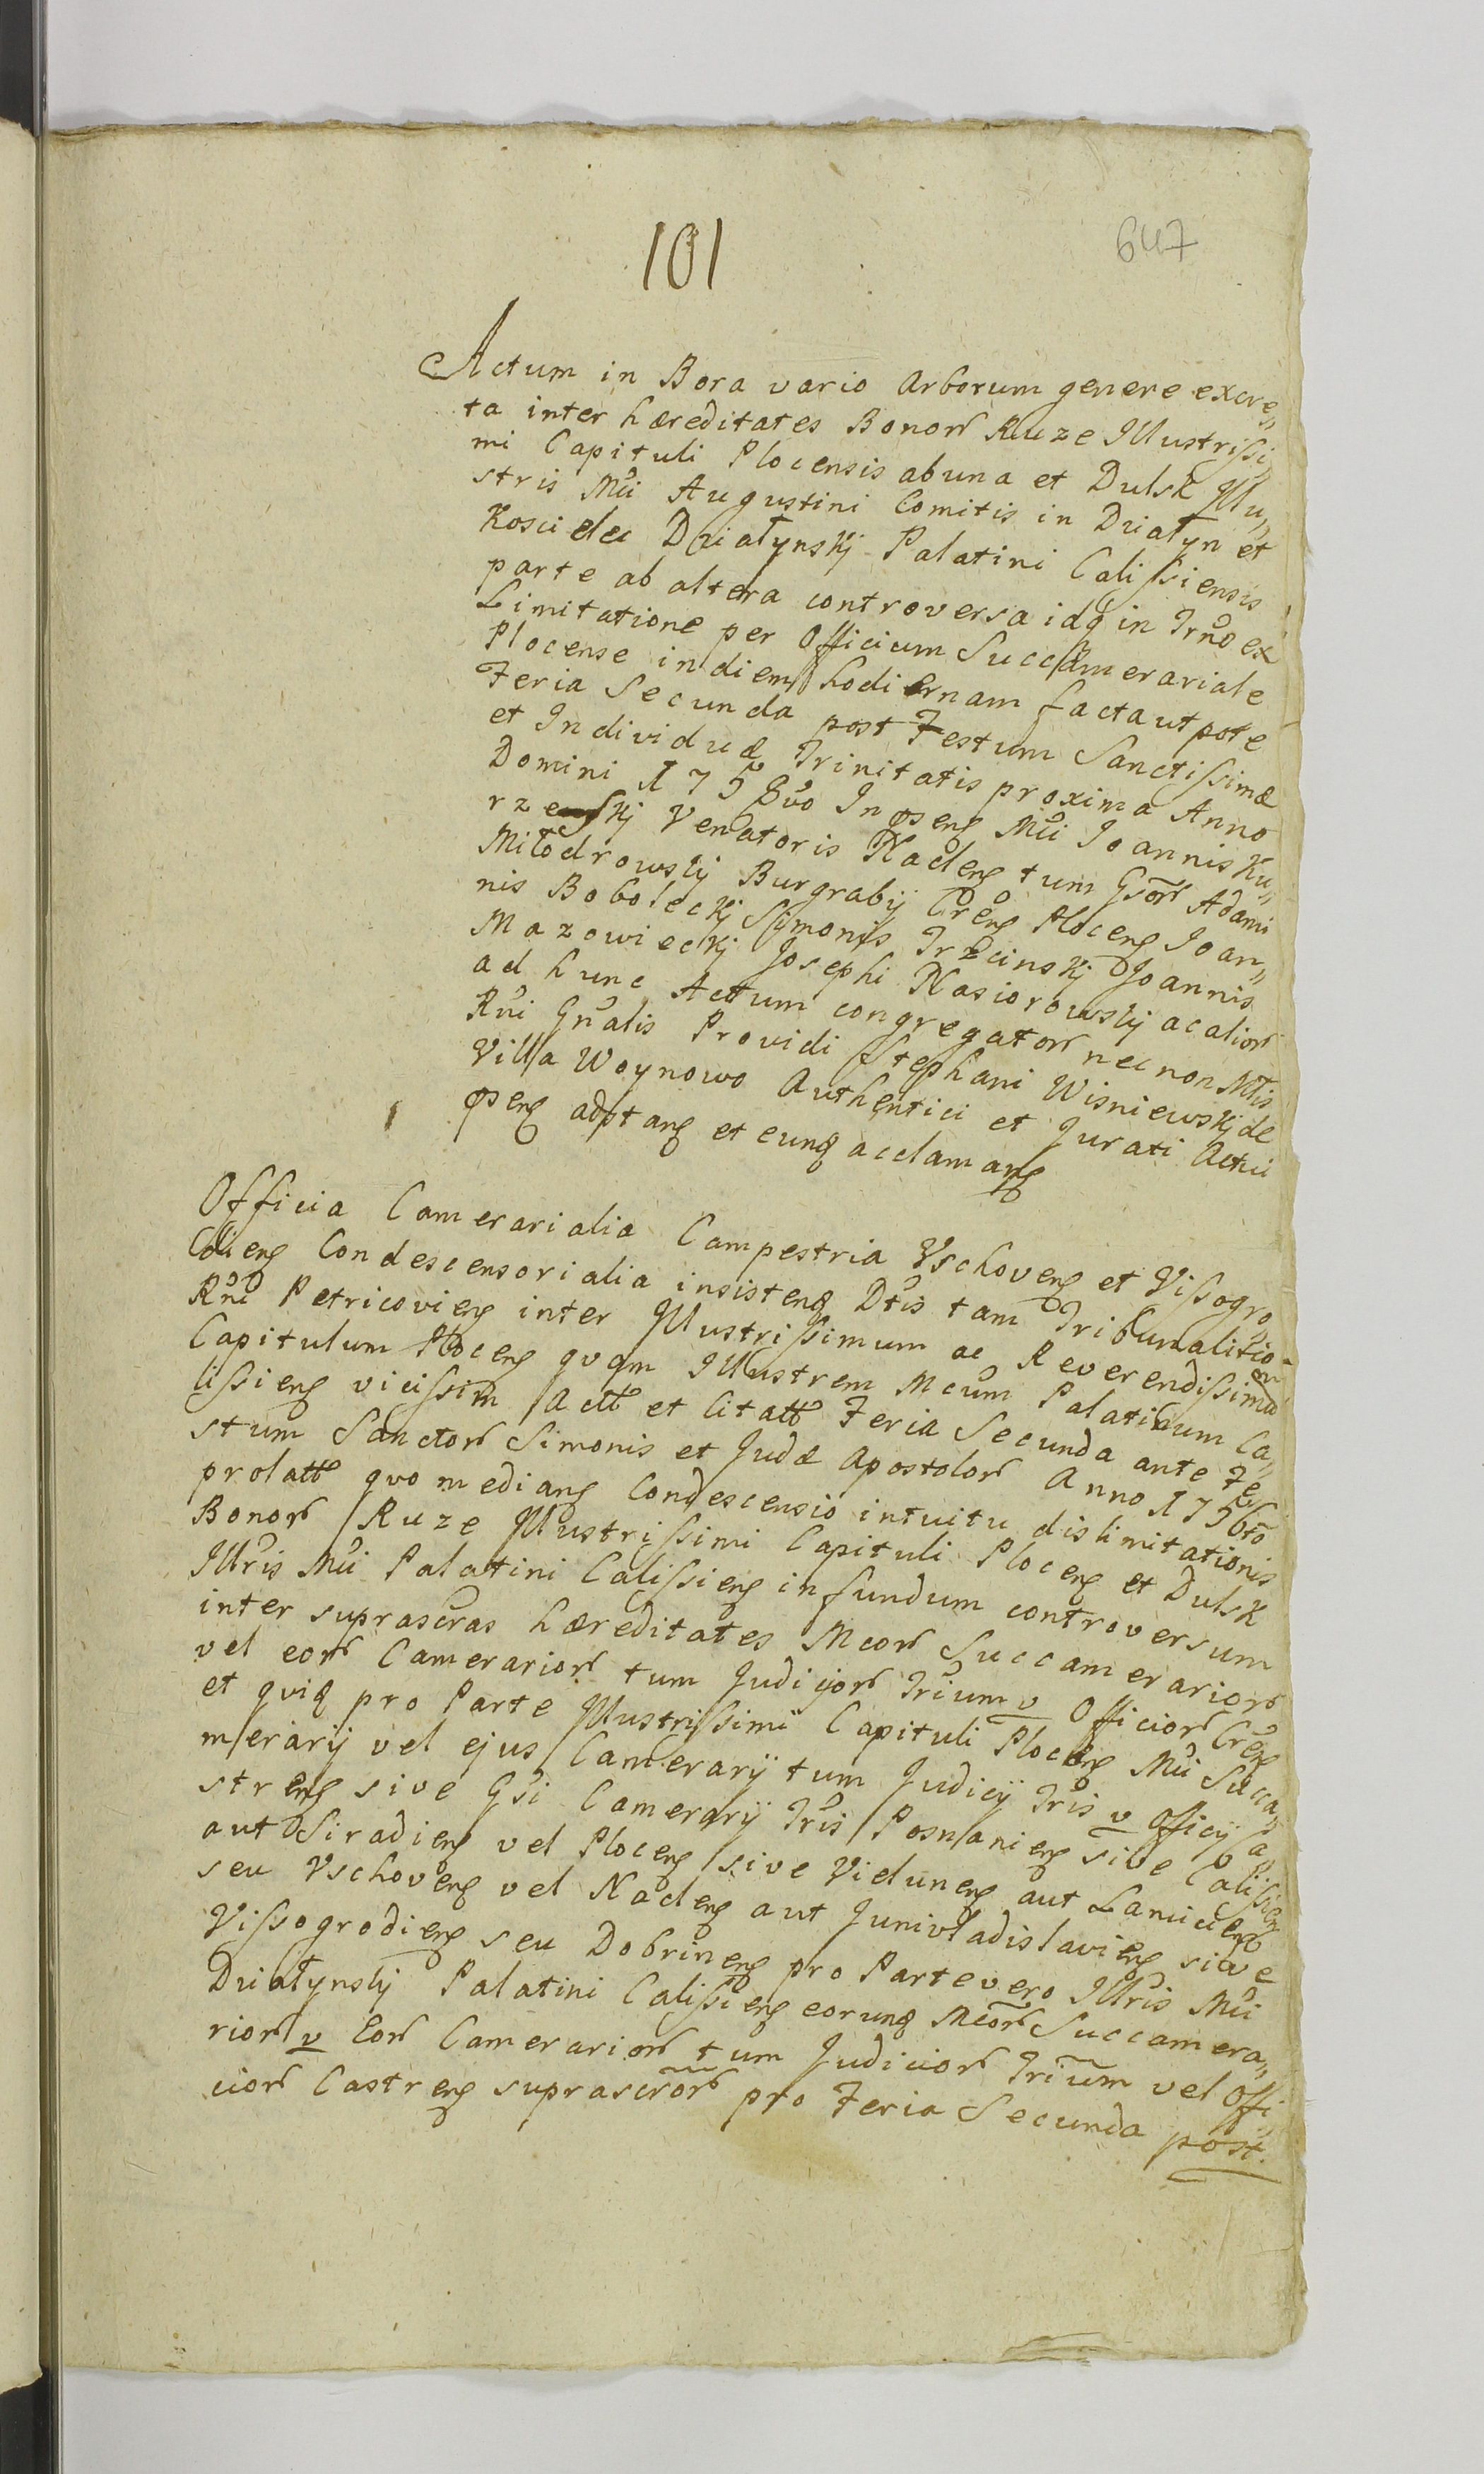 101
647
Actum in Bora vario Arborum genere excre„
ta inter hæreditates Bonorũ Ruze Illustrissi„
mi Capituli Plocensis ab una et Dulsk Illu„
stris Mci Augustini Comitis in Działyn et
Koscielec Działynskj Palatini Calissiensis
parte ab altera controversa idq in Trno ex
Limitatione per Officium Succamerariale
Plocense in diem hodiernam facta utpote
Feria Secunda post Festum Sanctissimæ
et Individuæ Trinitatis proxima Anno
Domini 1758vo In pseng Mci Joannis Ku„
rzeskj Venatoris Nacleng tum Gsorũ Adami
Miłodrowskj Burgrabij Creng Ploceng Joan„
nis Boboleckj Simonis Trzcinskj Joannis
Mazowieckj Josephi Nasiorowskj ac aliorũ
ad hunc Actum congregatorũ nec non Mtis
Rni Gnalis Providi Stephani Wisniewskj de
Villa Woynowo Authentici et Jurati Actui
pseng adptang et eunq acclamang
Officia Camerarialia Campestria Vschoveng et Vissogro„
dieng Condescensorialia insistenq Dtis tam Tribunalitio
Rni Petricovieng inter Illustrissimum ac Reverendissimũ
Capitulum Ploceng qvam Illustrem Mcum Palatinum Ca„
lissieng vicissim Actt et Citatt Feria Secunda ante Fe„
stum Sanctorũ Simonis et Judæ Apostolorũ Anno 1756to
prolatt qvo mediang Condescensio intuitu dislimitationis
Bonorũ Ruze Illustrissimi Capituli Ploceng et Dulsk
Illris Mci Palatini Calissieng in fundum controversum
inter suprascras hæreditates Mcorũ Succamerariorũ
vel eorũ Camerariorũ tum Judicijorũ Trium v Officiorũ Creng
et qviq pro Parte Illustrissimi Capituli Ploceng Mci Succa„
merarij vel ejus Camerarij tum Judicij Tris v Officij Ca„
streng sive Gsi Camerarij Tris Posnanieng sive Calissieng
aut Siradieng vel Ploceng sive Vieluneng aut Lancicieng
seu Vschoveng vel Nacleng aut Junivladislavieng sive
Vissogrodieng seu Dobrineng pro Parte vero Illris Mci
Działynskj Palatini Calissieng eorunq Mcorũ Succamera„
riorũ v Eorũ Camerariorũ tum Judiciorũ Trium vel Offi„
ciorũ Castreng suprascrorũ pro Feria Secunda post.